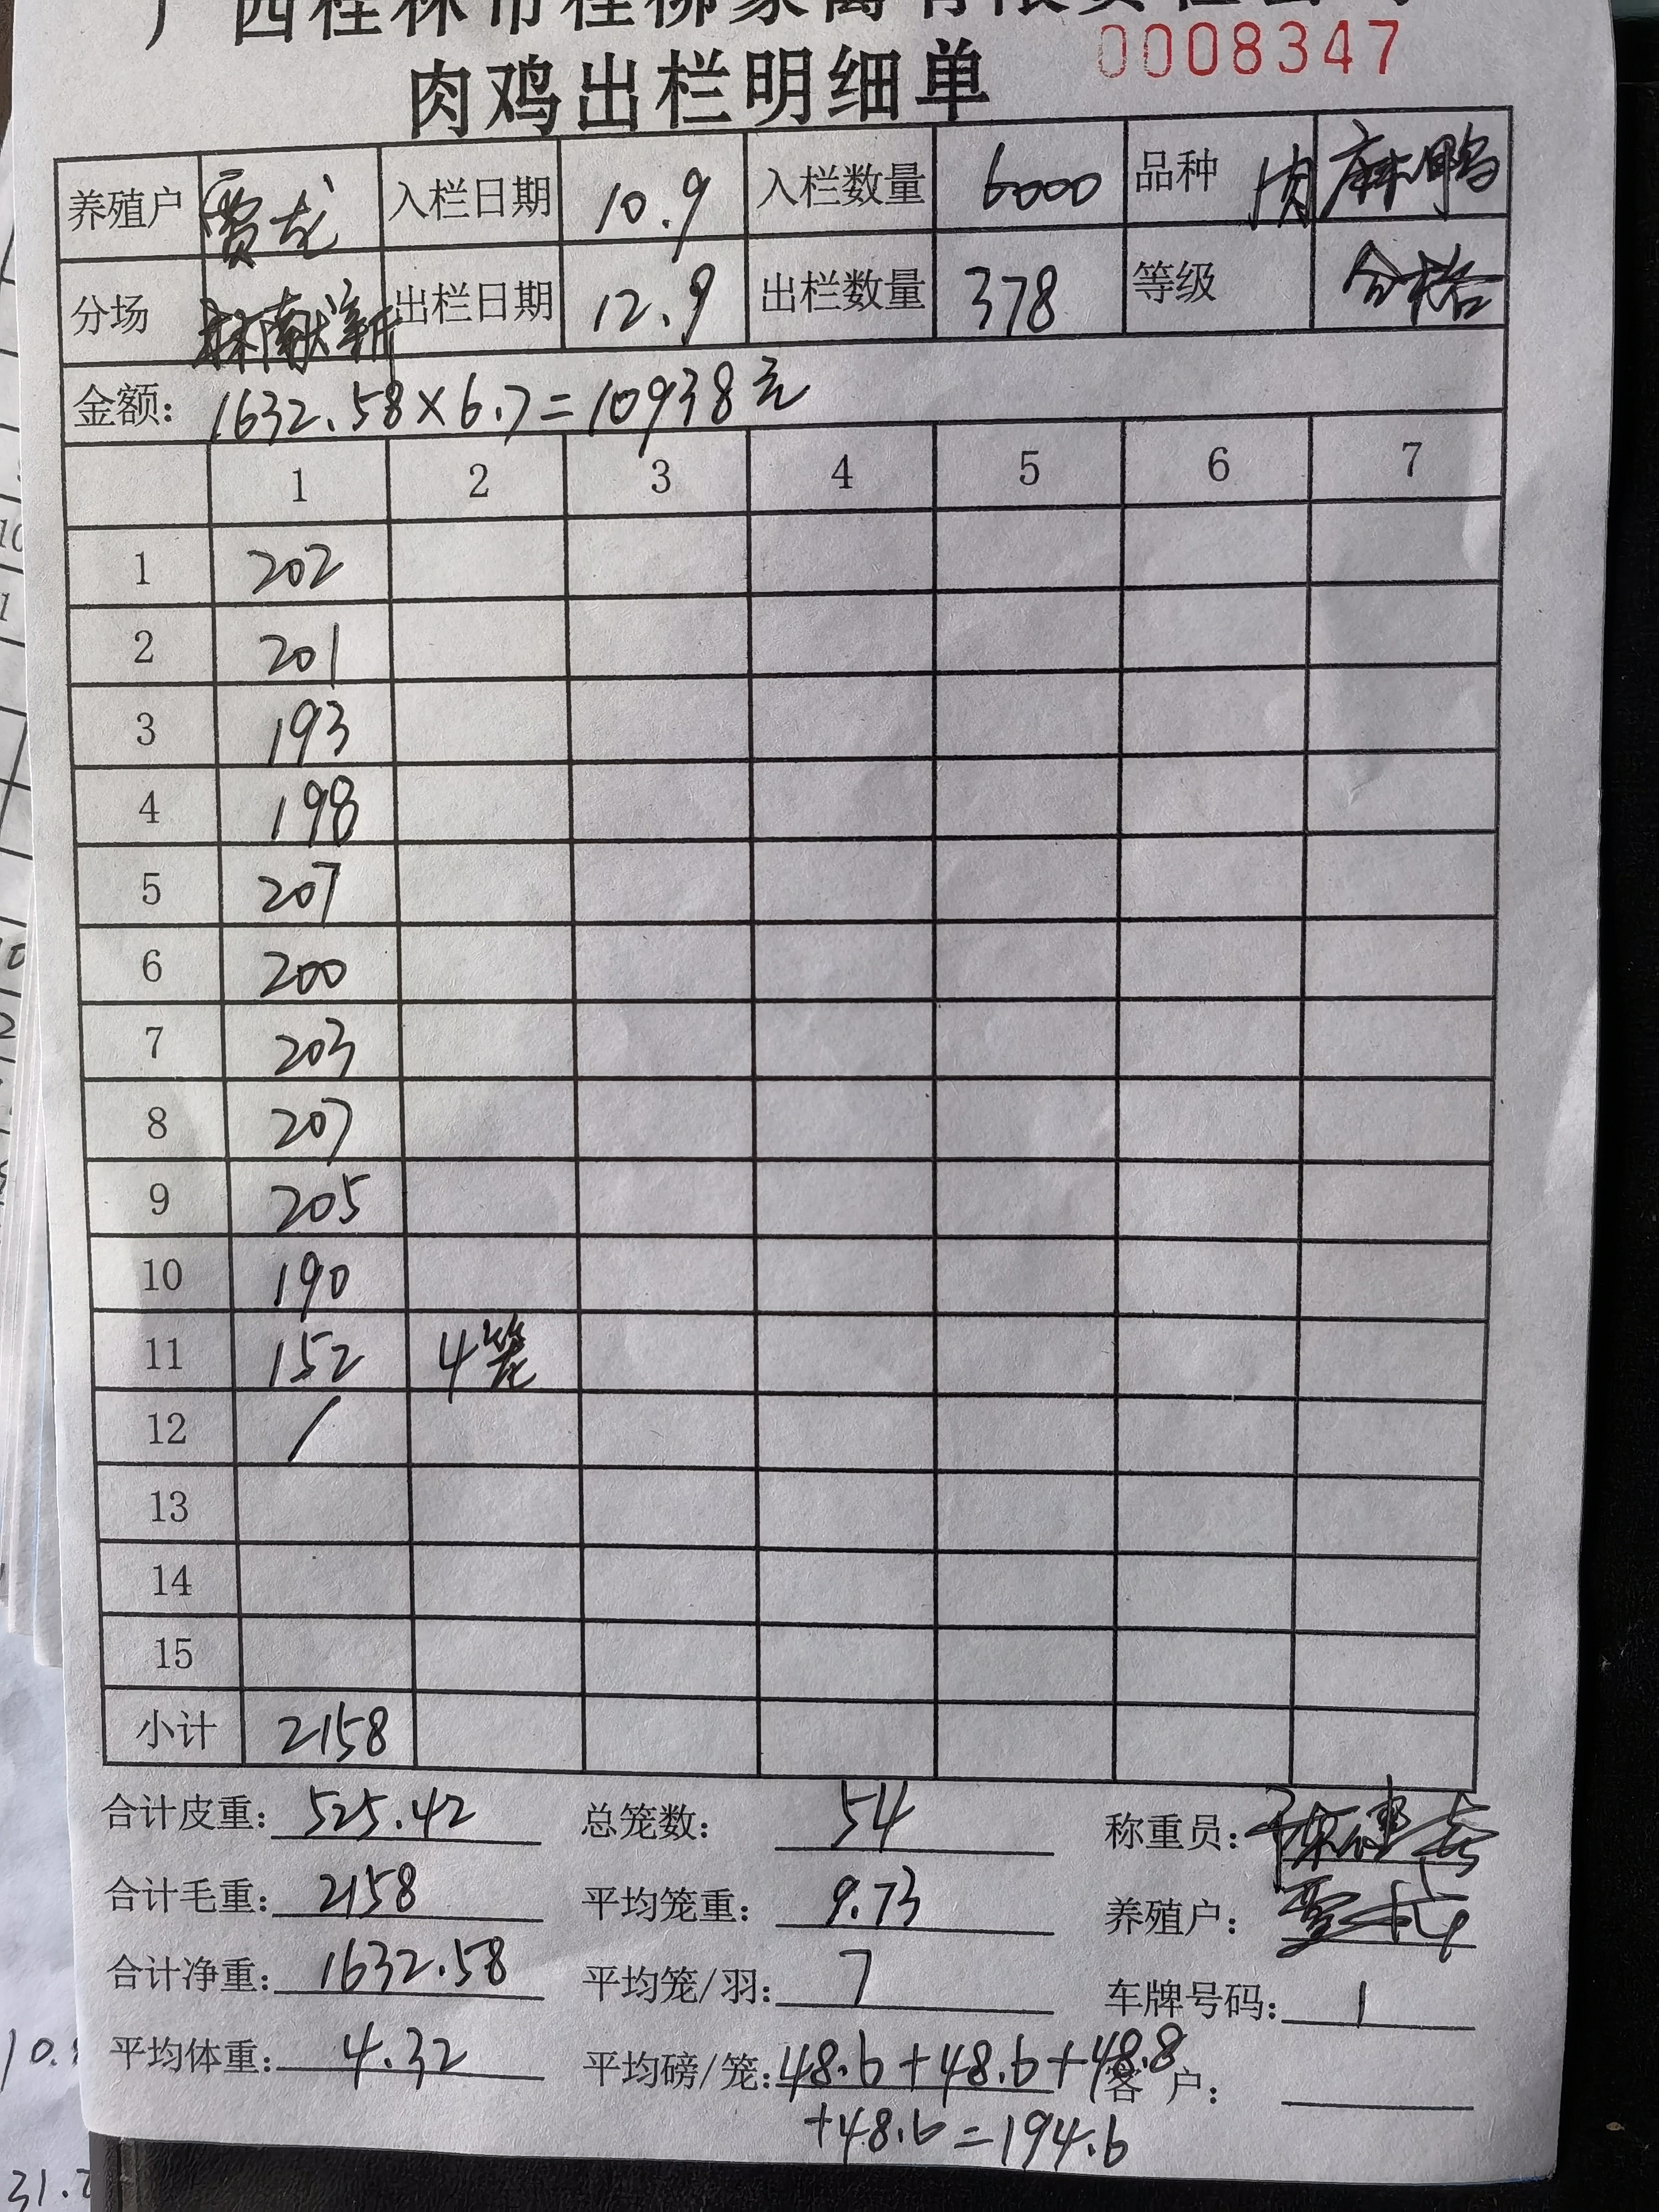 广西桂林市桂柳家禽有限责任公司
肉鸡出栏明细单 0008347
养殖户 贾龙 入栏日期 10.9 入栏数量 6000 品种 肉麻鸭
分场 林献新 出栏日期 12.9 出栏数量 378 等级 合格
金额: 1632.58×6.7=10938元
1 2 3 4 5 6 7
1 202
2 201
3 193
4 198
5 207
6 200
7 203
8 207
9 205
10 190
11 152 4笼
12 /
13
14
15
小计 2158
合计皮重: 525.42 总笼数: 54 称重员:
合计毛重: 2158 平均笼重: 9.73 养殖户:
合计净重: 1632.58 平均笼/羽: 7 车牌号码: 1
平均体重: 4.32 平均磅/笼: 48.6+48.6+48.8 客户:
+48.6=194.6